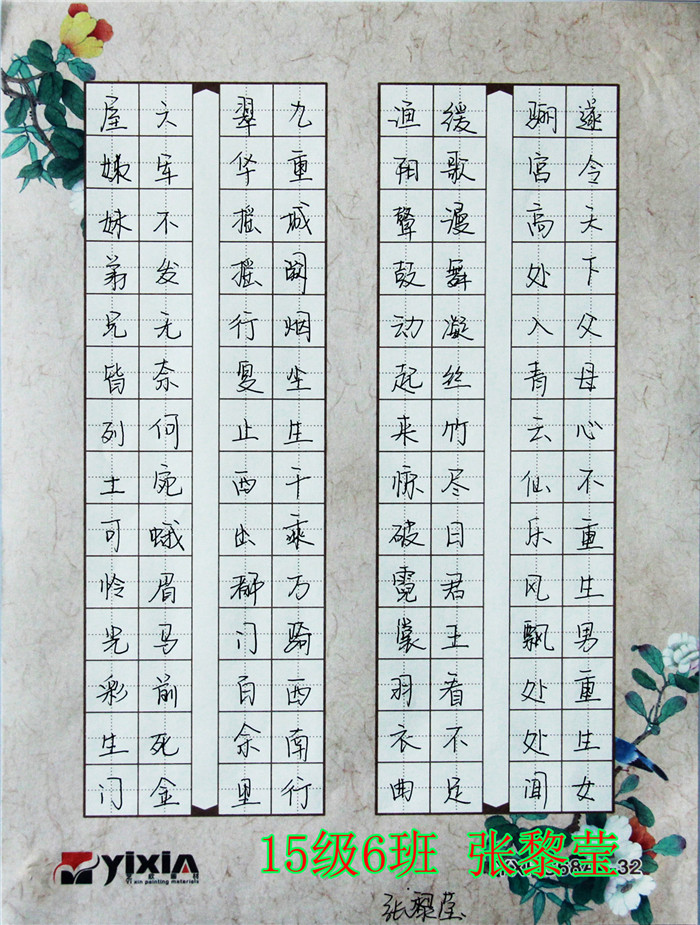 遂令天下父母心不重生男重生女
骊宫高处入青云仙乐风飘处处闻
缓歌漫舞凝丝竹尽日君王看不足
渔阳鼙鼓动起来惊破霓裳羽衣曲
九重城阙烟尘生千乘万骑西南行
翠华摇摇行复止西出都门百余里
六军不发无奈何宛蛾眉马前死金
屋姊妹弟兄皆列土可怜光彩生门
15级6班 张黎莹
yixin
Yi xin painting materials
张黎莹